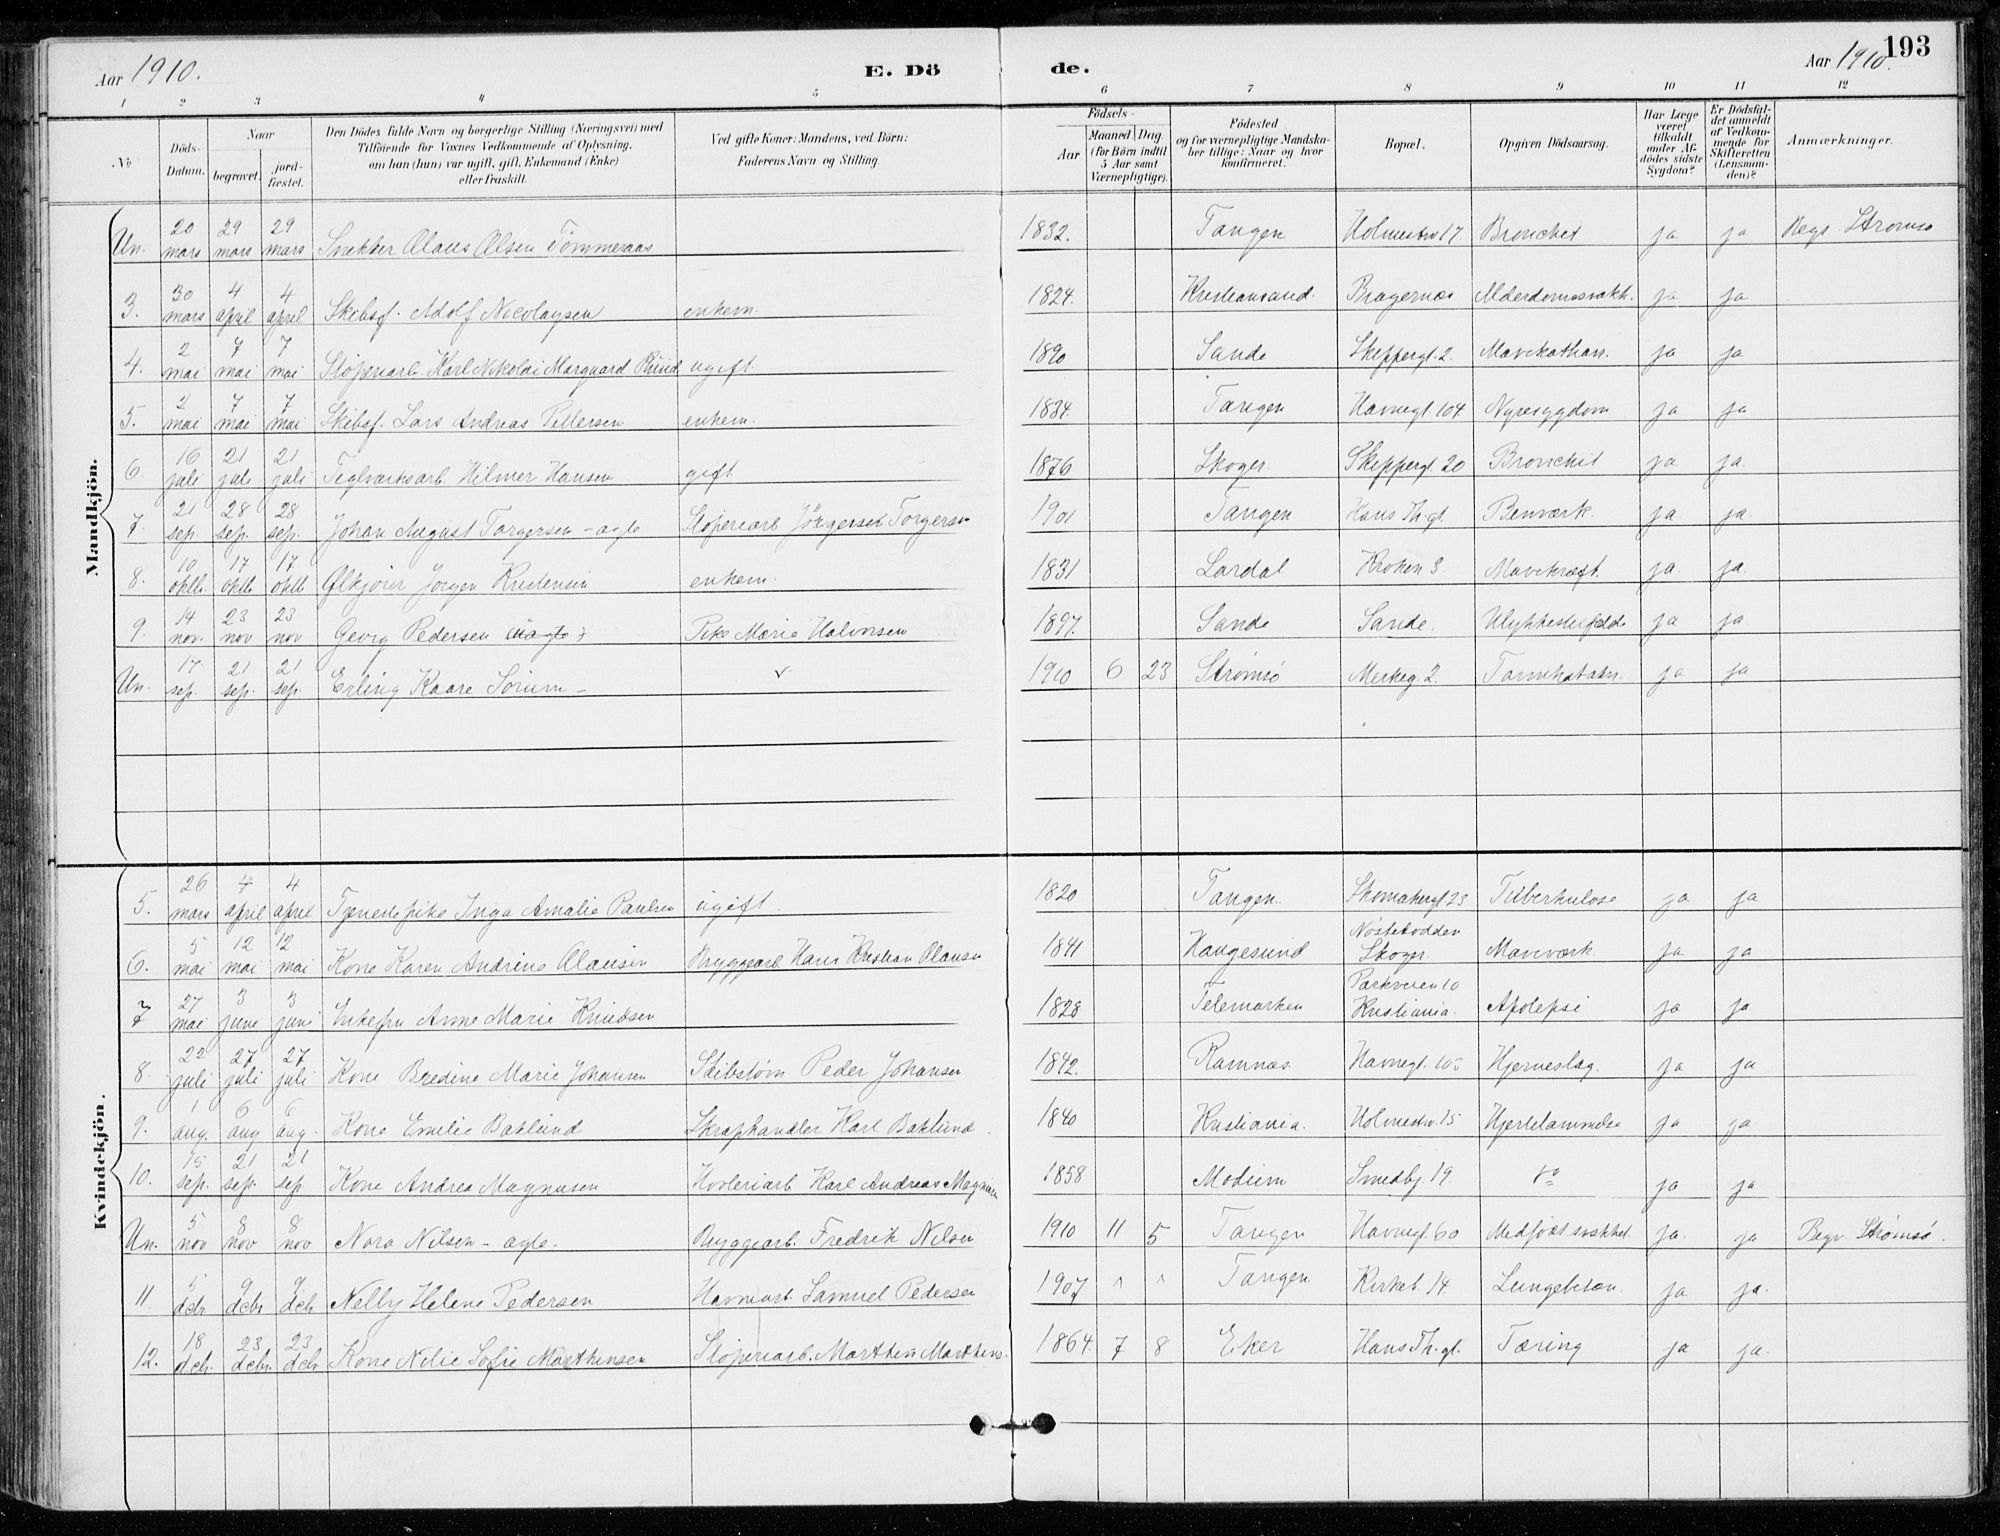 Aar 1910. E. Dö de. Aar 1910. 193
1 2 3 4 5 6 7 8 9 10 11 12
No
Döds-Datum.
Naar
begravet.
jord-fæstet.
Den Dödes fulde Navn og borgerlige Stilling (Næringsvei) med
Tilföiende for Voxnes Vedkommende af Oplysning,
om han (hun) var ugift, gift, Enkemand (Enke)
eller fraskilt.
Ved gifte Koner: Mandens, ved Börn:
Faderens Navn og Stilling.
Födsels-
Aar
Maaned. Dag.
(for Börn indtil
5 Aar samt
Værnepligtige).
Födested
og for værnepligtige Mandska-
ber tillige: Naar og hvor
konfirmeret.
Bopæl.
Opgiven Dödsaarsag.
Har Læge
været
tilkaldt
under Af-
dödes sidste
Sygdom?
Er Dödsfal-
det anmeldt
af Vedkom-
mende for
Skifteretten
(Lensman-
den)?
Anmærkninger.
Mandkjön.
Un. 20 mars 29 mars 29 mars Snekker Olaus Olsen Tømmeraas 1832. Tangen Holmestrv 17. Bronchit ja ja Begr. Strømsø
3. 30 mars 4 april 4 april Skibsf. Adolf Nicolaysen enkem. 1824. Kristiansand. Bragernæs Alderdomssvakh. ja ja
4. 2 mai 7 mai 7 mai Støperiarb. Karl Nikolai Marquard Ruud ugift 1890 Sande Skippergt. 2. Mavekathar. ja ja
5. 2 mai 7 mai 7 mai Skibsf. Lars Andreas Pettersen enkem. 1834. Tangen Havnegt. 104. Nyresygdom ja ja
6. 16 juli 21 juli 21 juli Teglverksarb. Hilmer Hansen gift 1876 Skoger. Skippergt. 20 Bronchit ja ja.
7. 21 sep. 28 sep. 28 sep. Johan August Torgersen - ægte Støperiarb Jørgensen Torgersen 1901 Tangen Hans Th. gt. Benværk. ja. ja.
8. 10 oktb. 17 oktb 17 oktb Ølkjører Jørgen Kristensen enkem. 1831 Lardal Kroken 3. Mavekræft. ja. ja.
9. 14 nov. 23 nov 23 nov Georg Pedersen (uægte) Pike Marie Halvorsen 1897. Sande Sande. Ulykkestilfælde ja ja
Un. 17 sep. 21 sep. 21 sep. Erling Kaare Sørum - 1910 6 23 Strømsø Merkeg. 2. Tarmkatarr. ja ja
Kvindekjön.
5. 26 mars 4 april 4 april Tjenestepike Inga Amalie Paulsen ugift. 1820 Tangen. Skomakergt. 23 Tuberkulose ja ja
6. 5 mai 12 mai 12 mai Kone Karen Andrine Olausen Bryggearb. Hans Kristian Olausen 1841 Haugesund Nøstetodden Skoger. Maveværk. ja ja
7 27 mai 3 juni 3 juni Enkefru Anne Marie Knudsen 1828 Telemarken Parkveien 10 Kristiania. Apolepsi ja ja
8. 22 juli 27 juli 27 juli Kone Bredine Marie Johansen Skibstøm Peder Johansen 1842. Ramnæs. Havnegt. 105 Hjerneslag. ja ja
9. 1 aug. 6 aug 6 aug. Kone Emilie Baklund Skraphandler Karl Baklund. 1840 Kristiania. Holmestrv. 15 Hjertelammelse ja ja
10. 15 sep. 21 sep. 21 sep Kone Andrea Magnusen Høvleriarb Karl Andreas Magnusen 1858 Modum Smedbj 19. do ja ja
Un. 5 nov 8 nov 8 nov Nora Nilsen - ægte. Bryggearb. Fredrik Nilsen 1910 11 5 Tangen Havnegt. 60 Medfødt svakhet. ja. ja Begr. Strømsø.
11. 5 dcb. 9 dcbr 9 dcb. Nelly Helene Pedersen Havnearb. Samuel Pedersen 1907 Tangen Kirkeb. 14. Lungebetæn. ja ja.
12. 18 dcb. 23 dcbr. 23 dcb Kone Nilie Sofie Marthinsen Støperiarb. Marthin Marthins. 1864. 7 8 Eker Hans Th. gt. Tæring ja ja.